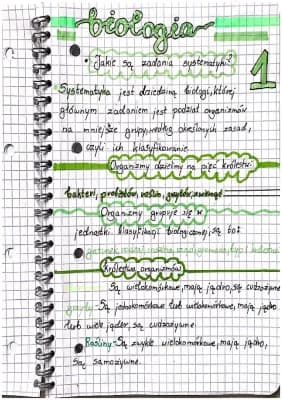 biologia
1
• Jakie są zadania systematyki?
Systematyka jest dziedziną biologi, której
głównym zadaniem jest podział organizmów
na mniejsze grupy, według określonych zasad,
czyli ich klasyfikowanie.
Organizmy dzielimy na pięć królestw:
bakterii, protistów, roślin, grzybów, zwierząt
Organizmy grupuje się w
jednostki klasyfikacji biologicznej, są to:
gatunek, rodzaj, rodzina, rząd, gromada, typ i królestwo
Królestwa organizmów
Są wielokomórkowe, mają jądro, są cudzożywne
grzyby - Są jednokomórkowe lub wielokomórkowe, mają jądro
lub wiele jąder, są cudzożywne
Rośliny - Są zwykle wielokomórkowe, mają jądro,
są samożywne.